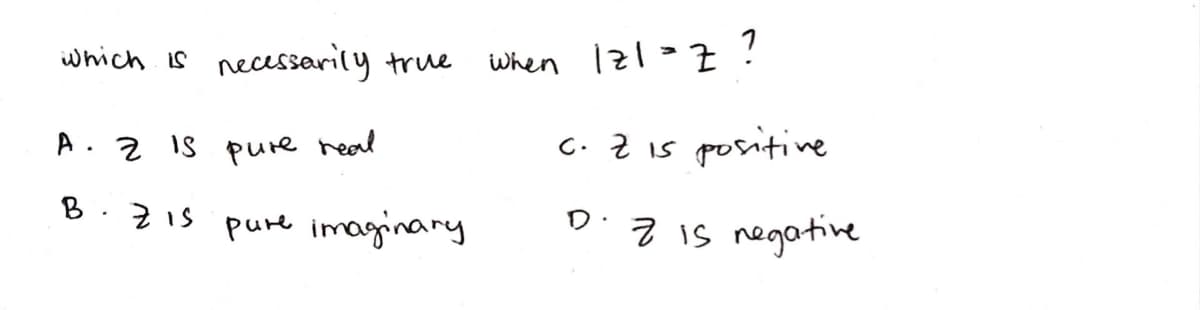 which is necessarily true when |z| = z ?
A. z is pure real
C. z is positive
B. z is pure imaginary
D. z is negative